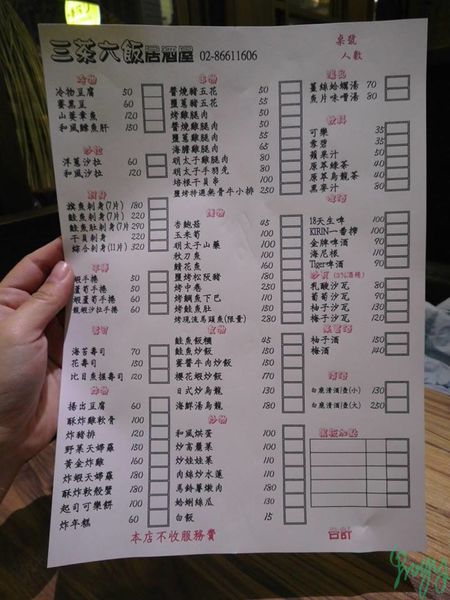 三茶六飯居酒屋 02-86611606
桌號
人數
冷物
冷物豆腐 50
毒黑豆 60
山藥章魚 120
和風鱈魚肝 150
沙拉
洋蔥沙拉 60
和風沙拉 120
刺身
旗魚刺身(7片) 180
鮭魚刺身(7片) 220
鮭魚肚刺身(7片) 290
干貝刺身 220
綜合刺身(11片) 320
手捲
蝦手捲 50
蘆筍手捲 50
蝦蘆筍手捲 60
龍蝦沙拉手捲 60
壽司
海苔壽司 70
花壽司 130
比目魚握壽司 120
炸物
揚出豆腐 60
酥炸雞軟骨 100
炸豬排 120
野菜天婦羅 150
黃金炸雞 160
炸蝦天婦羅 180
酥炸軟殼蟹 200
起司可樂餅 100
炸年糕 60
串物
醬燒豬五花 50
鹽蔥豬五花 55
烤雞腿肉 50
醬燒雞腿肉 55
鹽蔥雞腿肉 55
海膽雞腿肉 60
明太子雞腿肉 80
明太子手羽先 80
培根干貝串 100
鹽烤特選梁骨牛小排 250
燒物
杏鮑菇 45
玉米筍 60
明太子山藥 90
秋刀魚 90
鯖花魚 160
鹽烤松阪豬 160
烤中卷 250
烤鯛魚下巴 110
烤鮭魚肚 150
烤現流馬頭魚(限量) 280
食物
鮭魚飯糰 45
鮭魚炒飯 100
賽醬牛肉炒飯 100
櫻花蝦炒飯 120
日式炒烏龍 130
海鮮湯烏龍 180
炒物
和風烘蛋 100
炒高麗菜 100
炒娃娃菜 100
肉絲炒水蓮 130
馬鈴薯燉肉 180
蛤蜊絲瓜 130
白飯 15
湯品
薑絲蛤蠣湯 70
魚片味噌湯 80
飲料
可樂 35
雪碧 35
蘋果汁 40
原萃綠茶 40
原萃烏龍茶 40
黑麥汁 60
啤酒
18天生啤 100
KIRIN一番搾 100
金牌啤酒 90
海尼根 110
Tiger啤酒 90
沙瓦 (3%酒精)
乳酸沙瓦 80
葡萄沙瓦 90
柚子沙瓦 130
梅子沙瓦 120
果實酒
柚子酒 150
梅酒 140
清酒
白鹿清酒(壺)(小) 130
白鹿清酒(壺)(大) 250
合計
本店不收服務費